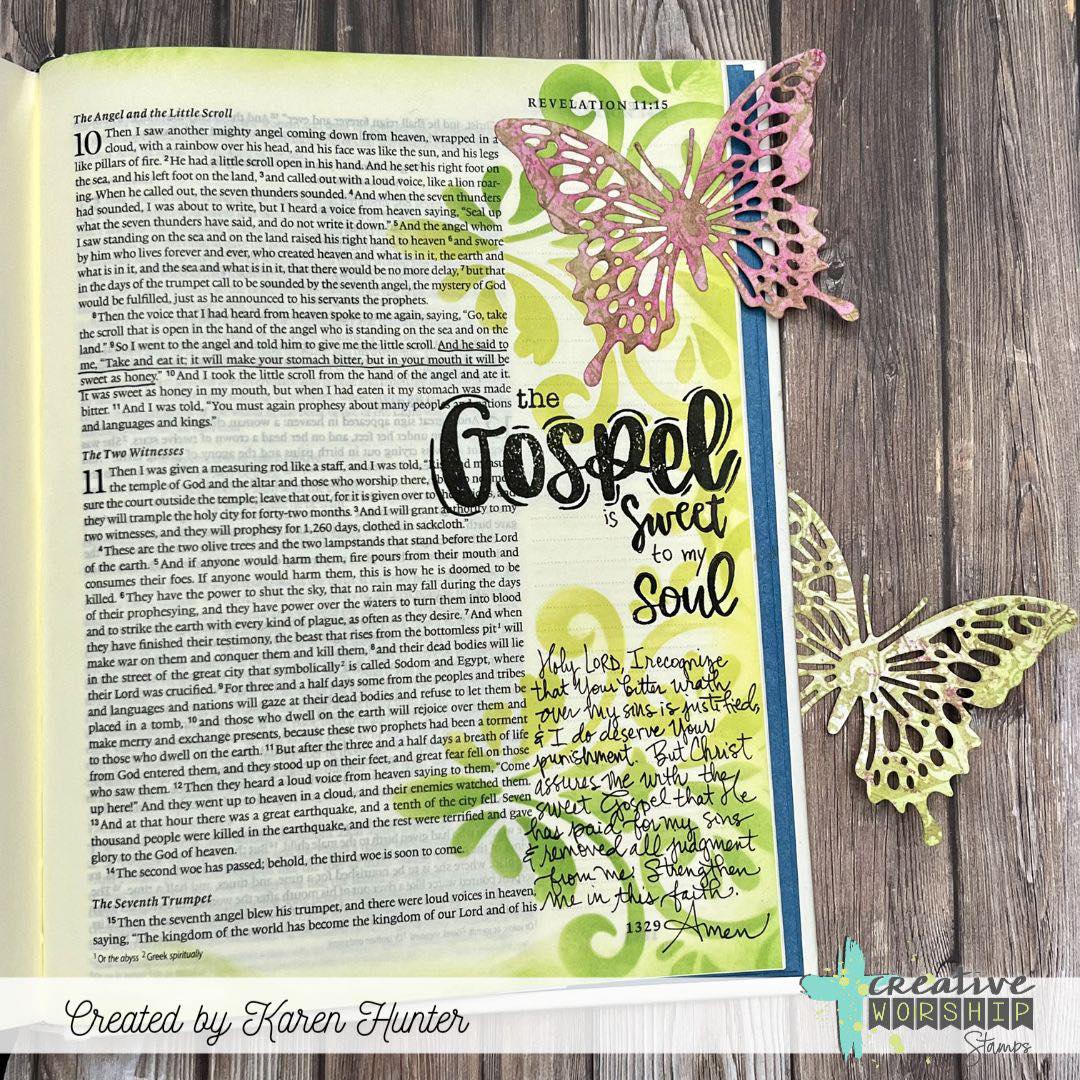 REVELATION 11:15
The Angel and the Little Scroll
10 Then I saw another mighty angel coming down from heaven, wrapped in a
cloud, with a rainbow over his head, and his face was like the sun, and his legs
like pillars of fire. 2 He had a little scroll open in his hand. And he set his right foot on
the sea, and his left foot on the land, 3 and called out with a loud voice, like a lion roar-
ing. When he called out, the seven thunders sounded. 4 And when the seven thunders
had sounded, I was about to write, but I heard a voice from heaven saying, "Seal up
what the seven thunders have said, and do not write it down." 5 And the angel whom
I saw standing on the sea and on the land raised his right hand to heaven 6 and swore
by him who lives forever and ever, who created heaven and what is in it, the earth and
what is in it, and the sea and what is in it, that there would be no more delay, 7 but that
in the days of the trumpet call to be sounded by the seventh angel, the mystery of God
would be fulfilled, just as he announced to his servants the prophets.
8 Then the voice that I had heard from heaven spoke to me again, saying, "Go, take
the scroll that is open in the hand of the angel who is standing on the sea and on the
land." 9 So I went to the angel and told him to give me the little scroll. And he said to
me, "Take and eat it; it will make your stomach bitter, but in your mouth it will be
sweet as honey." 10 And I took the little scroll from the hand of the angel and ate it.
It was sweet as honey in my mouth, but when I had eaten it my stomach was made
bitter. 11 And I was told, "You must again prophesy about many peoples and nations
and languages and kings."
The Two Witnesses
11 Then I was given a measuring rod like a staff, and I was told,
the temple of God and the altar and those who worship there,
sure the court outside the temple; leave that out, for it is given over to
they will trample the holy city for forty-two months. 3 And I will grant authority to my
two witnesses, and they will prophesy for 1,260 days, clothed in sackcloth."
4 These are the two olive trees and the two lampstands that stand before the Lord
of the earth. 5 And if anyone would harm them, fire pours from their mouth and
consumes their foes. If anyone would harm them, this is how he is doomed to be
killed. 6 They have the power to shut the sky, that no rain may fall during the days
of their prophesying, and they have power over the waters to turn them into blood
and to strike the earth with every kind of plague, as often as they desire. 7 And when
they have finished their testimony, the beast that rises from the bottomless pit1 will
make war on them and conquer them and kill them, 8 and their dead bodies will lie
in the street of the great city that symbolically2 is called Sodom and Egypt, where
their Lord was crucified. 9 For three and a half days some from the peoples and tribes
and languages and nations will gaze at their dead bodies and refuse to let them be
placed in a tomb, 10 and those who dwell on the earth will rejoice over them and
make merry and exchange presents, because these two prophets had been a torment
to those who dwell on the earth. 11 But after the three and a half days a breath of life
from God entered them, and they stood up on their feet, and great fear fell on those
who saw them. 12 Then they heard a loud voice from heaven saying to them, "Come
up here!" And they went up to heaven in a cloud, and their enemies watched them.
13 And at that hour there was a great earthquake, and a tenth of the city fell. Seven
thousand people were killed in the earthquake, and the rest were terrified and gave
glory to the God of heaven.
14 The second woe has passed; behold, the third woe is soon to come.
The Seventh Trumpet
15 Then the seventh angel blew his trumpet, and there were loud voices in heaven,
saying, "The kingdom of the world has become the kingdom of our Lord and of his
1 Or the abyss 2 Greek spiritually
the
Gospel
is sweet
to my
soul
Holy LORD, I recognize
that Your bitter wrath
over my sins is justified,
& I do deserve Your
punishment. But Christ
assures me with the
sweet Gospel that He
has paid for my sins
& removed all judgment
from me. Strengthen
me in this faith.
1329 Amen
Created by Karen Hunter
creative
WORSHIP
Stamps